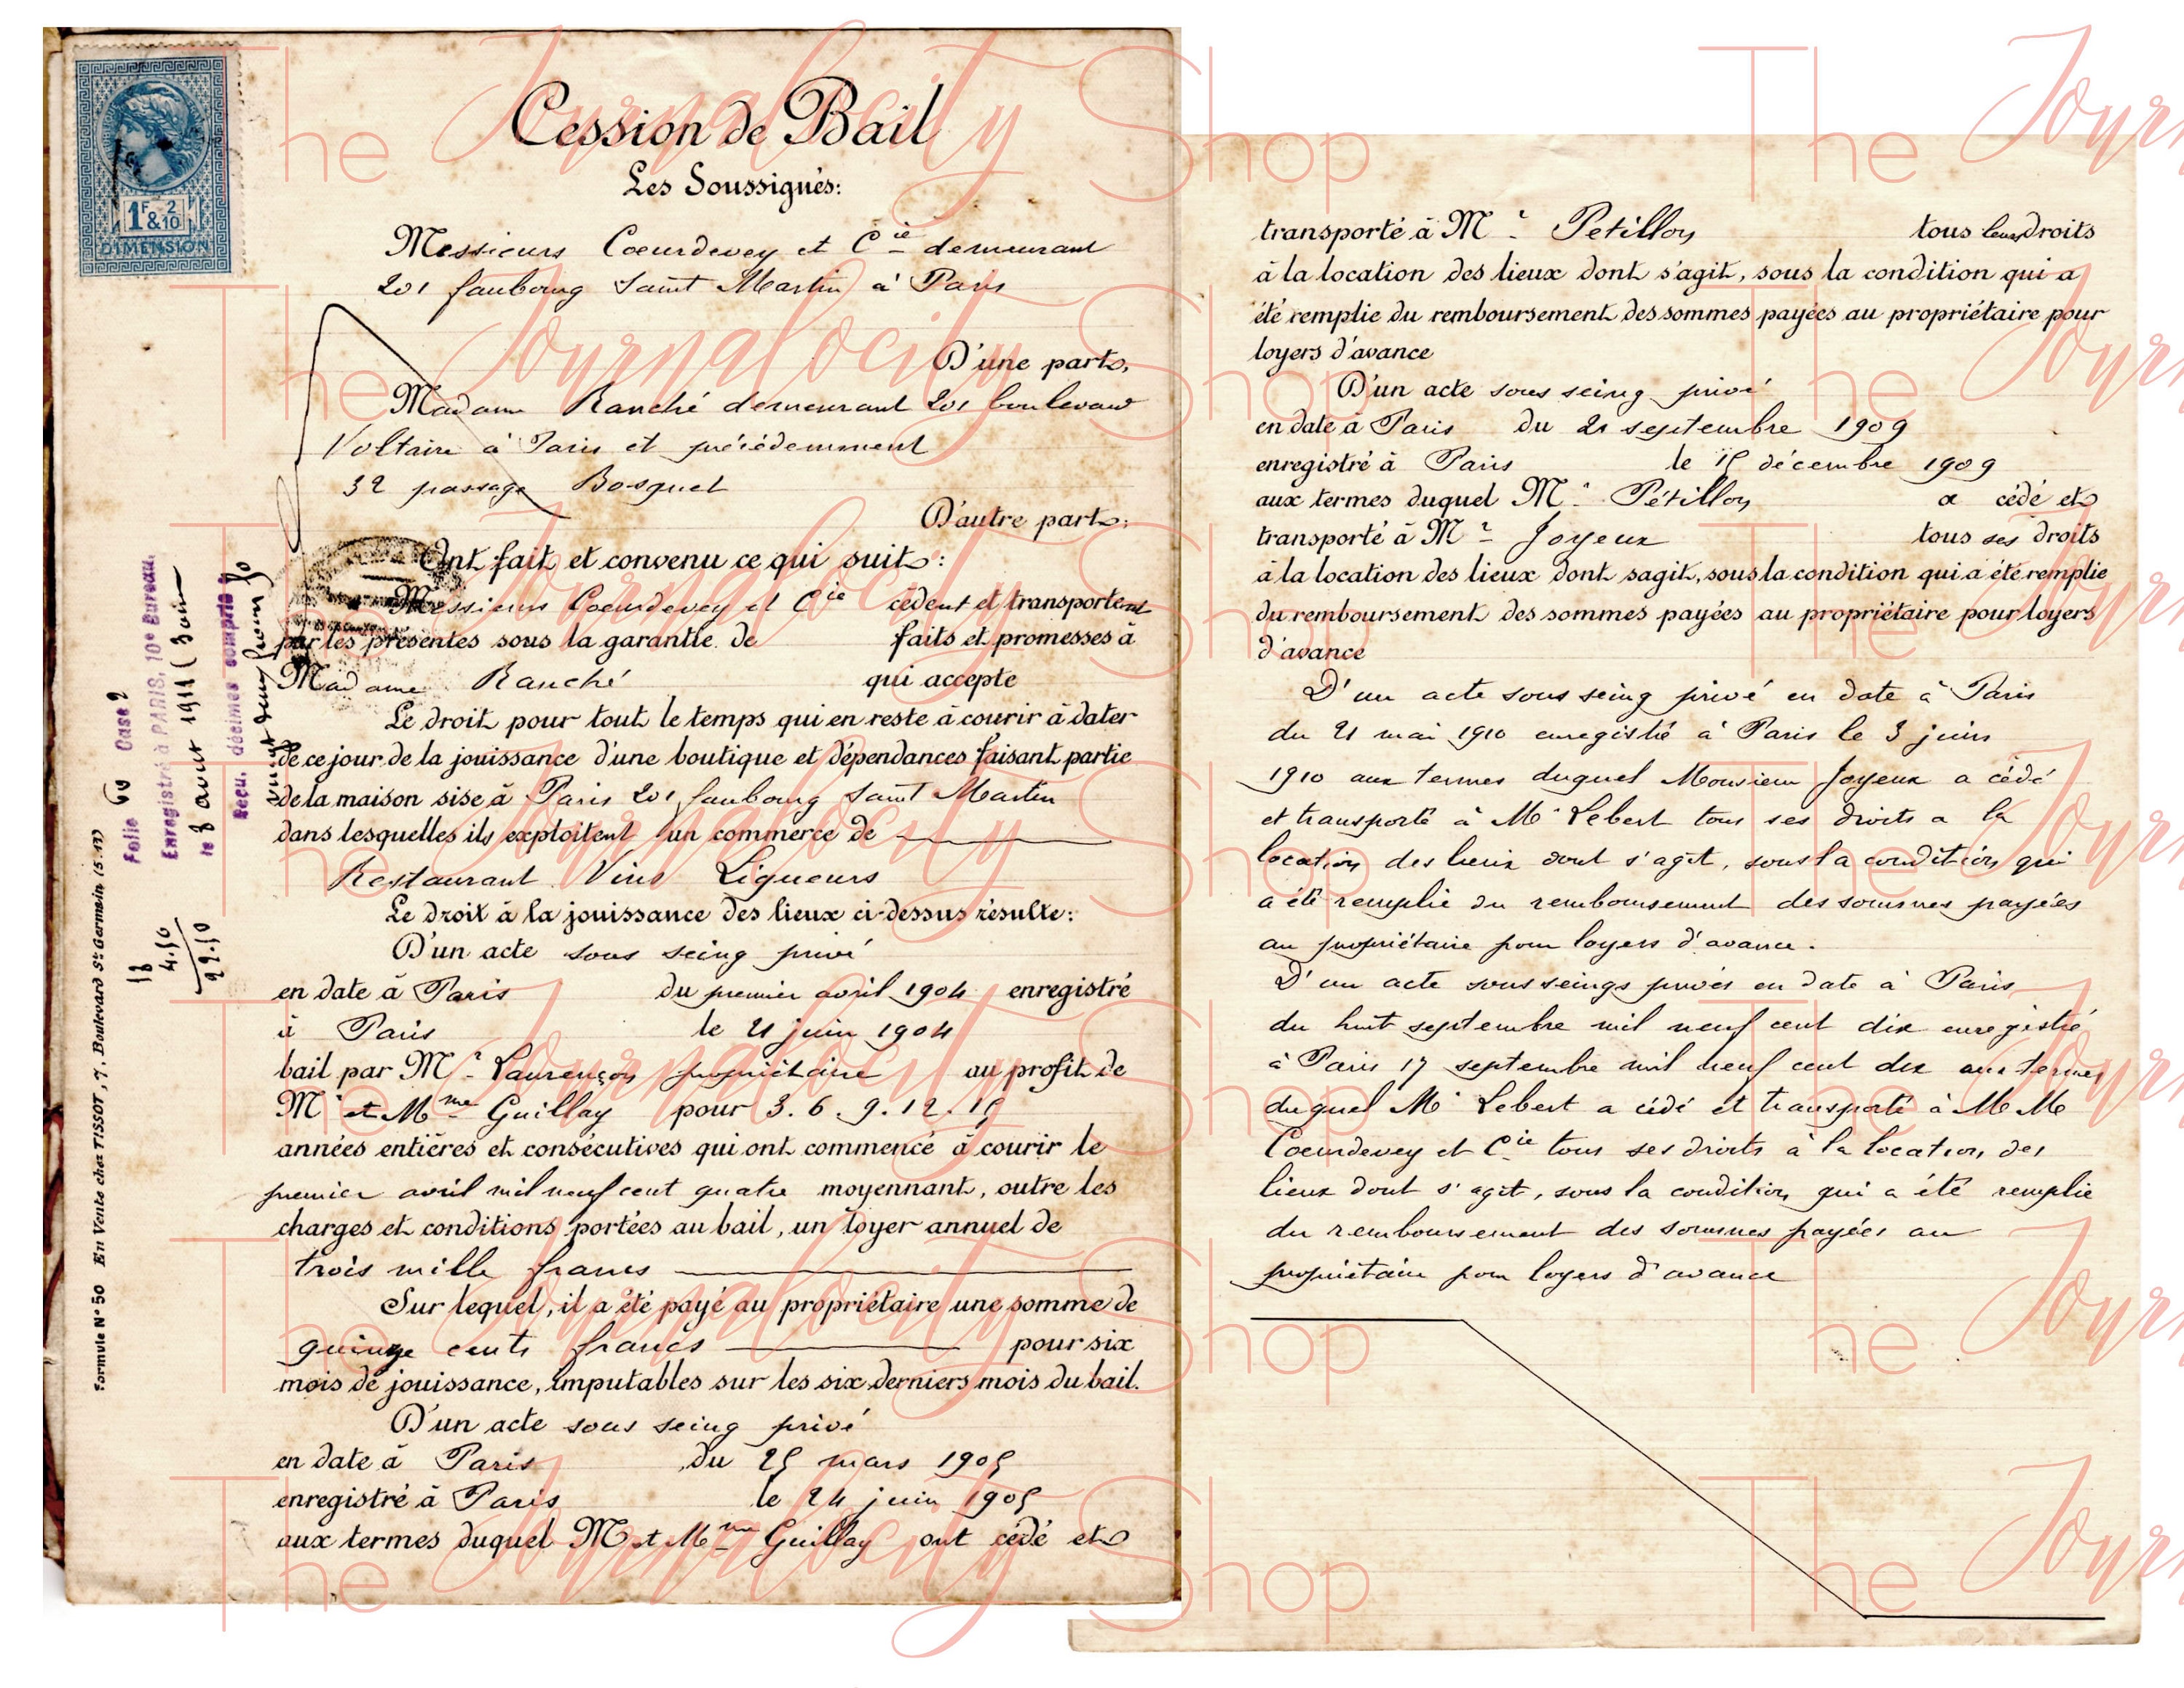 1F & 2/10
DIMENSION
Cession de Bail
Les Soussignés:
Messieurs Coeurdevey et Cie demeurant
201 faubourg Saint Martin à Paris
D'une part,
Madame Ranché demeurant 201 boulevard
Voltaire à Paris et précédemment
32 passage Bosquet
D'autre part:
Ont fait et convenu ce qui suit:
Messieurs Coeurdevey et Cie cèdent et transportent
par les présentes sous la garantie de faits et promesses à
Madame Ranché qui accepte
Le droit pour tout le temps qui en reste à courir à dater
de ce jour de la jouissance d'une boutique et dépendances faisant partie
de la maison sise à Paris 201 faubourg Saint Martin
dans lesquelles ils exploitent un commerce de
Restaurant Vins Liqueurs
Le droit à la jouissance des lieux ci-dessus résulte:
D'un acte sous seing privé
en date à Paris du premier avril 1904 enregistré
à Paris le 21 juin 1904
bail par Mr Laurençon propriétaire au profit de
Mr et Mme Guillay pour 3. 6. 9. 12. 15
années entières et consécutives qui ont commencé à courir le
premier avril mil neuf cent quatre moyennant, outre les
charges et conditions portées au bail, un loyer annuel de
trois mille francs
Sur lequel, il a été payé au propriétaire une somme de
quinze cents francs pour six
mois de jouissance, imputables sur les six derniers mois du bail.
D'un acte sous seing privé
en date à Paris du 25 mars 1905
enregistré à Paris le 24 juin 1905
aux termes duquel M et Mme Guillay ont cédé et
Formule No 50 En Vente chez TISSOT, 7, Boulevard St Germain (5.12)
Folio 60 Case 2
Enregistré à PARIS, 10e Bureau
le 8 avril 1911
Reçu, décimes compris
18
4.50
22.50
transporté à Mr Petillon tous leurs droits
à la location des lieux dont s'agit, sous la condition qui a
été remplie du remboursement des sommes payées au propriétaire pour
loyers d'avance
D'un acte sous seing privé
en date à Paris du 21 septembre 1909
enregistré à Paris le 15 décembre 1909
aux termes duquel Mr Pétillon a cédé et
transporté à Mr Joyeux tous ses droits
à la location des lieux dont sagit, sous la condition qui a été remplie
du remboursement des sommes payées au propriétaire pour loyers
d'avance
D'un acte sous seing privé en date à Paris
du 21 mai 1910 enregistré à Paris le 3 juin
1910 aux termes duquel Monsieur Joyeux a cédé
et transporté à Mr Lebert tous ses droits a la
location des lieux dont s'agit, sous la condition qui
a été remplie du remboursement des sommes payées
au propriétaire pour loyers d'avance.
D'un acte sous seings privés en date à Paris
du huit septembre mil neuf cent dix enregistré
à Paris 17 septembre mil neuf cent dix aux termes
duquel Mr Lebert a cédé et transporté à M M
Coeurdevey et Cie tous ses droits à la location des
lieux dont s'agit, sous la condition qui a été remplie
du remboursement des sommes payées au
propriétaire pour loyers d'avance
The Journalocity Shop